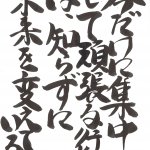 今だけに集中
して頑張る行
は知らずに
未来を変えて
いる